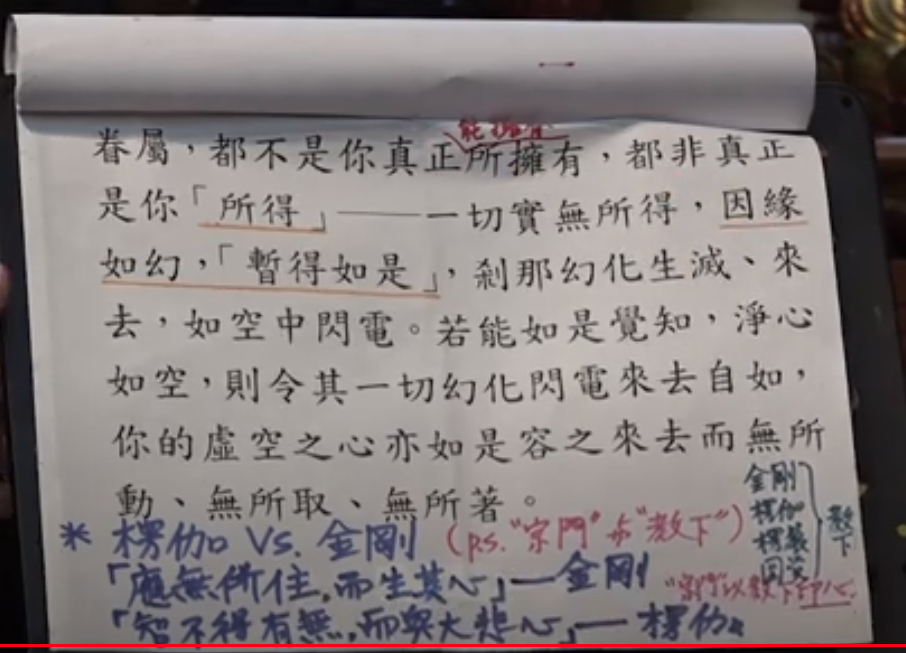 能擁有
眷屬，都不是你真正所擁有，都非真正
是你「所得」——一切實無所得，因緣
如幻，「暫得如是」，剎那幻化生滅、來
去，如空中閃電。若能如是覺知，淨心
如空，則令其一切幻化閃電來去自如，
你的虛空之心亦如是容之來去而無所
動、無所取、無所著。
金剛
楞伽
楞嚴
教下
* 楞伽 VS. 金剛 (ps."宗門"亦"教下")
「應無所住，而生其心」—金剛
"宗門"以教下印心.
「智不得有無，而興大悲心」—楞伽